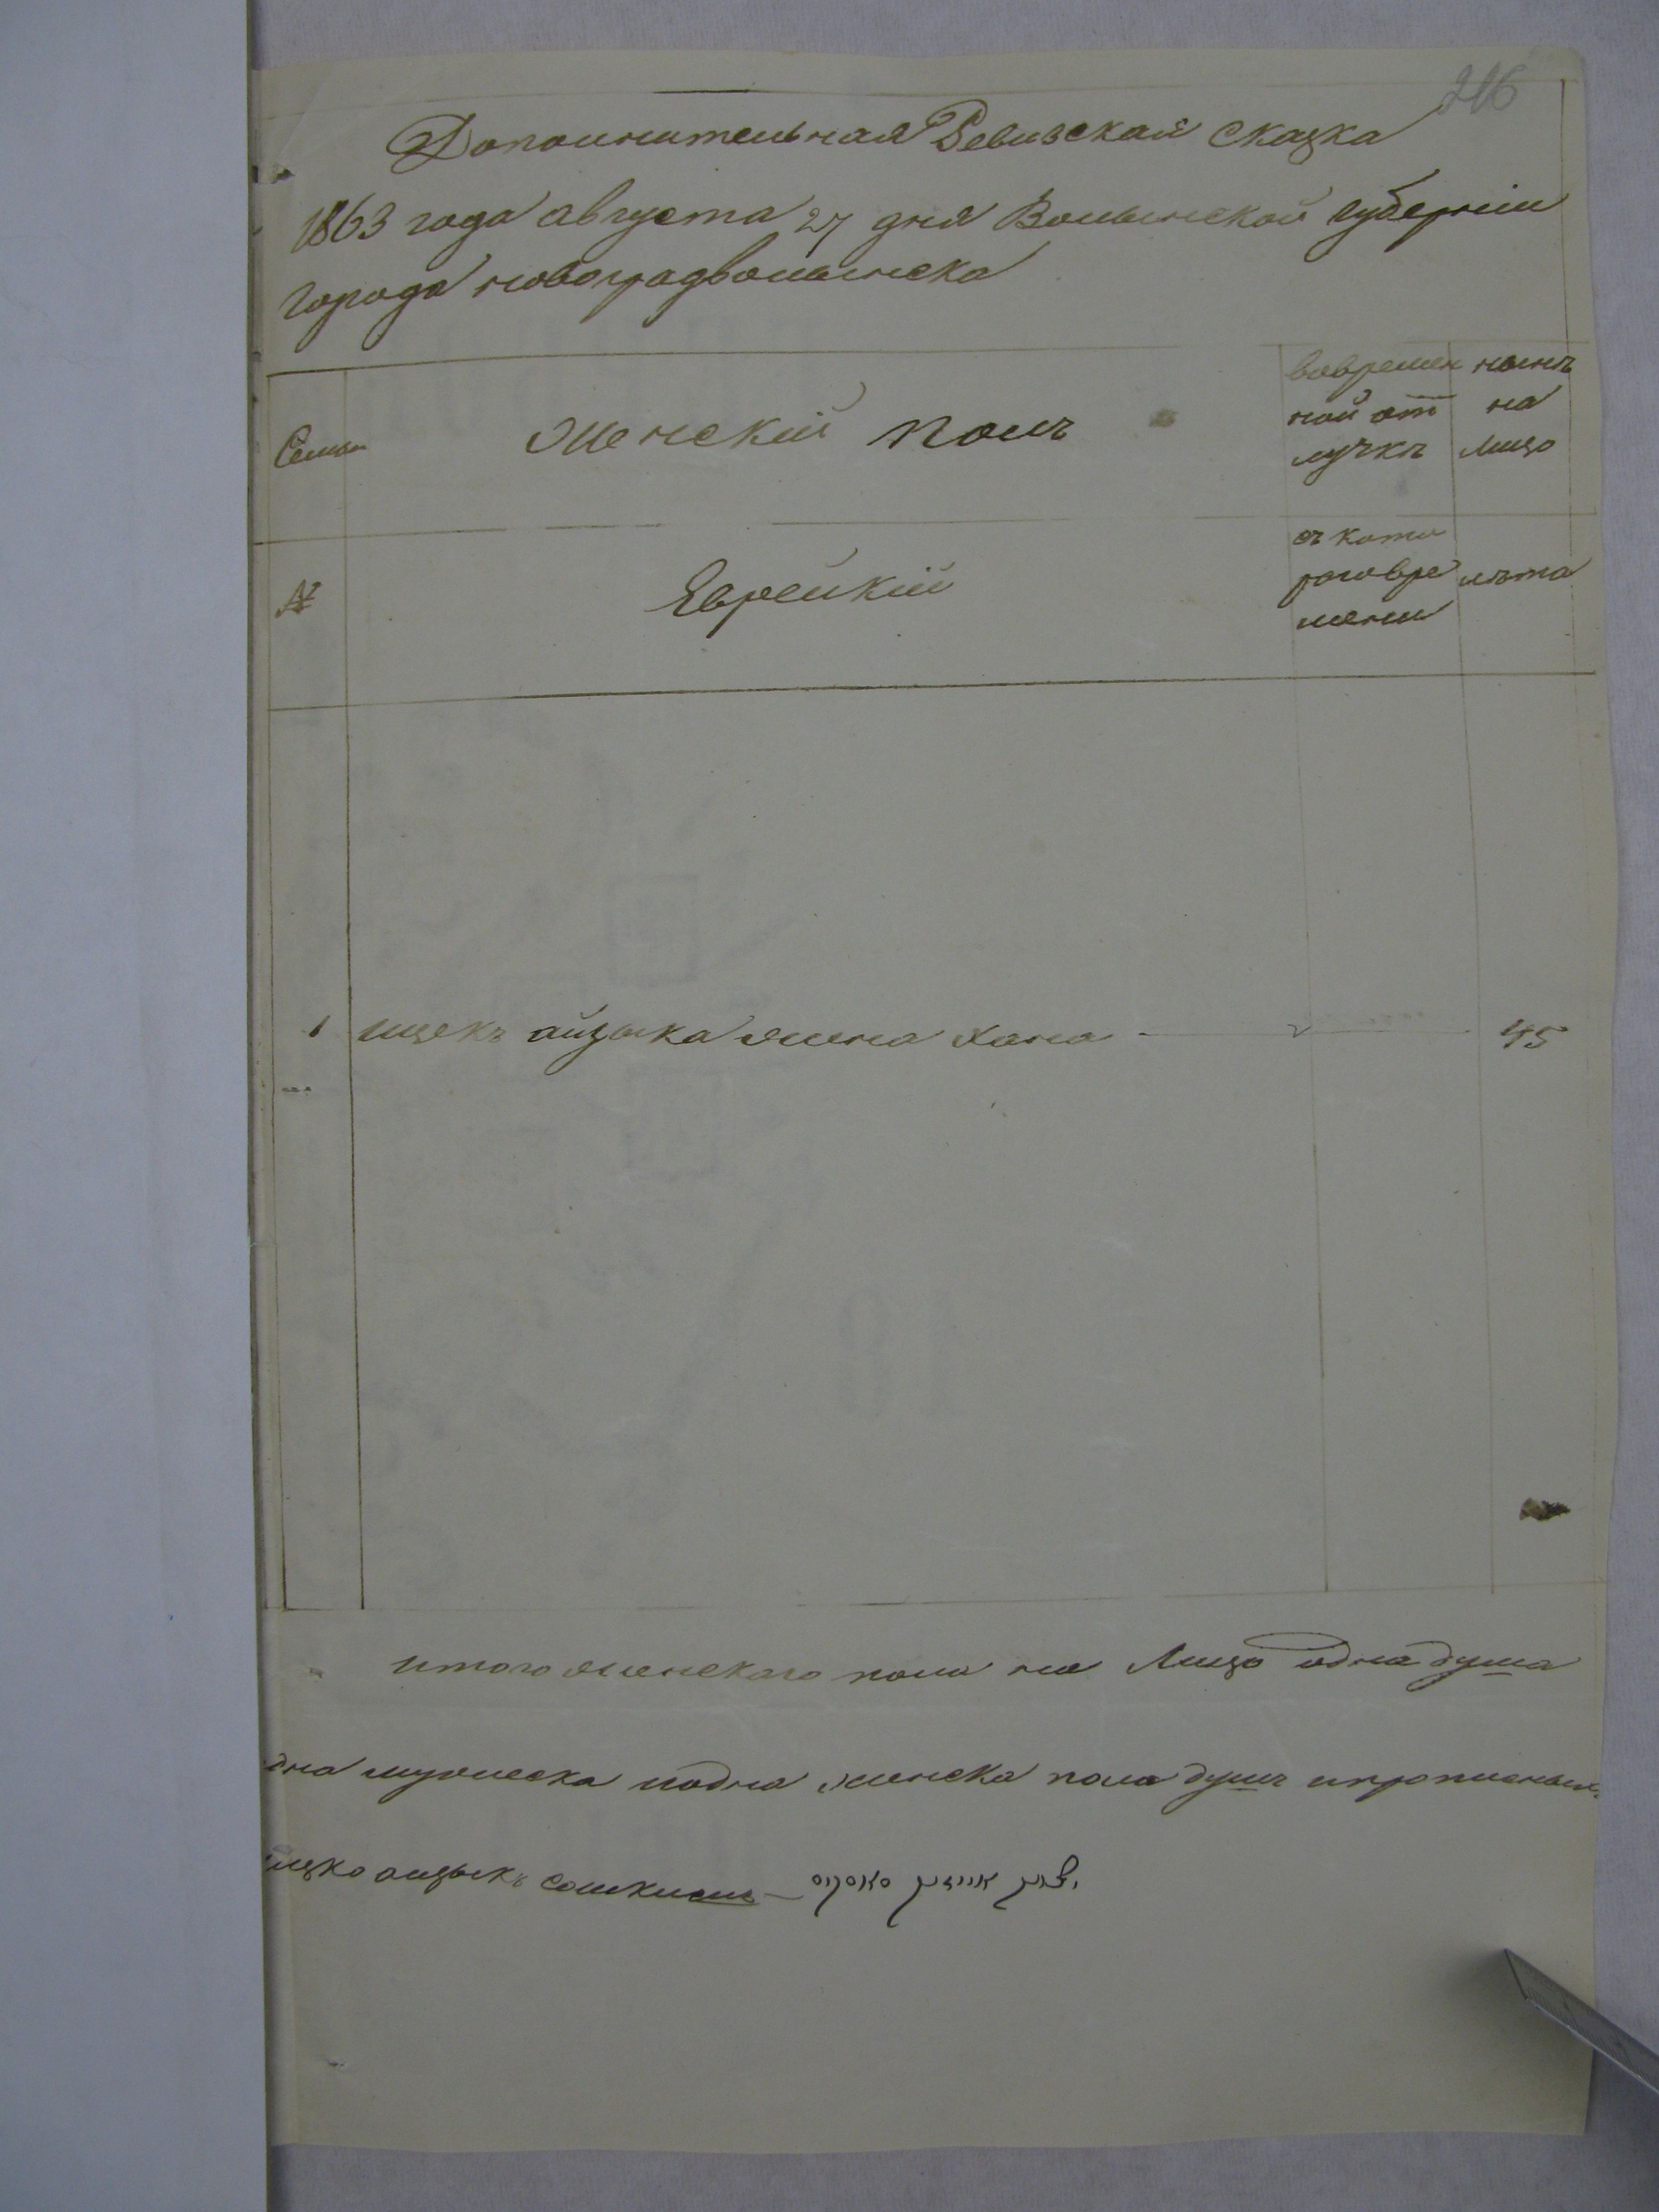 216
Дополнительная Ревизская сказка
1863 года августа 27 дня Волынской губернии
города новоградволынска
Семьи
женскій полъ
вовремен
ной от
лучкѣ
нынѣ
на
лицо
№
Еврейкій
съ кото
раговре
мени
лѣта
1 ицекъ айзыка жена хана 45
итого женскаго пола на лицо одна душа
дна мужеска иодна женска пола душъ ипрописных
ицко аизыкъ
יצחק אייזיק